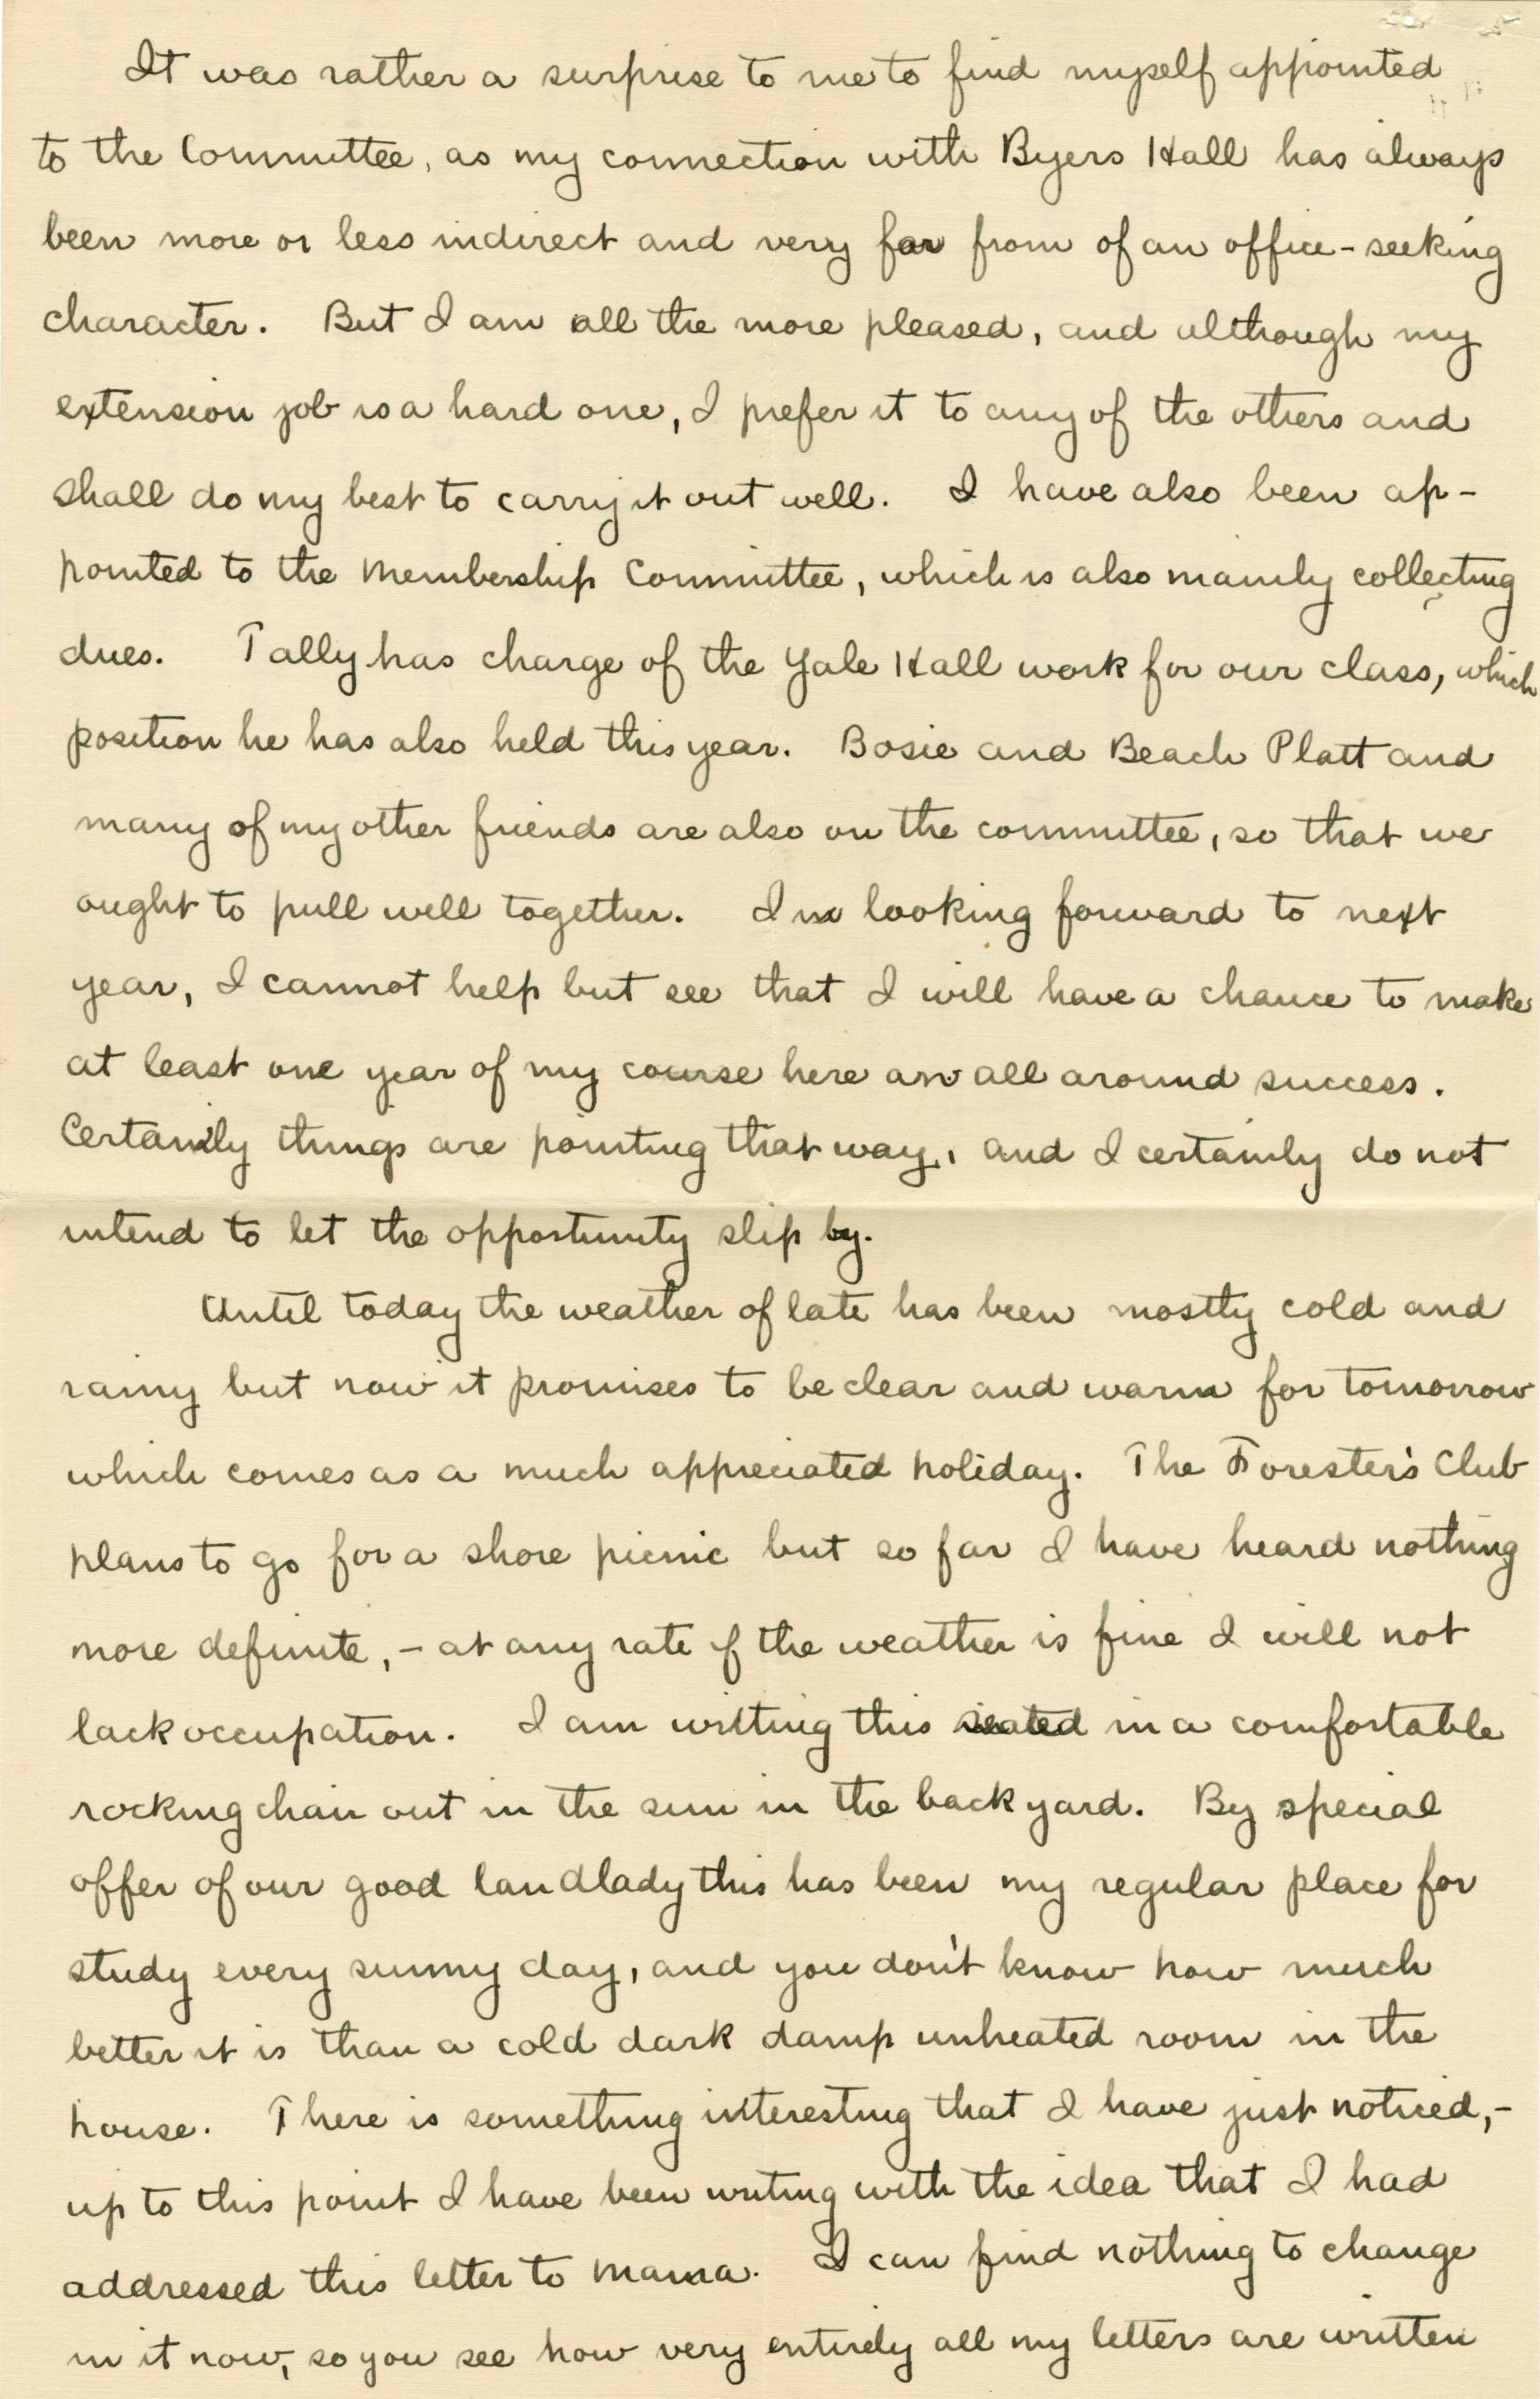 It was rather a surprise to me to find myself appointed
to the Committee, as my connection with Byers Hall has always
been more or less indirect and very far from of an office-seeking
character. But I am all the more pleased, and although my
extension job is a hard one, I prefer it to any of the others and
shall do my best to carry it out well. I have also been ap-
pointed to the Membership Committee, which is also mainly collecting
dues. Tally has charge of the Yale Hall work for our class, which
position he has also held this year. Bosie and Beach Platt and
many of my other friends are also on the committee, so that we
ought to pull well together. In looking forward to next
year, I cannot help but see that I will have a chance to make
at least one year of my course here an all around success.
Certainly things are pointing that way, and I certainly do not
intend to let the opportunity slip by.
Until today the weather of late has been mostly cold and
rainy but now it promises to be clear and warm for tomorrow
which comes as a much appreciated holiday. The Forester's Club
plans to go for a shore picnic but so far I have heard nothing
more definite, - at any rate if the weather is fine I will not
lack occupation. I am writing this seated in a comfortable
rocking chair out in the sun in the back yard. By special
offer of our good landlady this has been my regular place for
study every sunny day, and you don't know how much
better it is than a cold dark damp unheated room in the
house. There is something interesting that I have just noticed, -
up to this point I have been writing with the idea that I had
addressed this letter to Mama. I can find nothing to change
in it now, so you see how very entirely all my letters are written